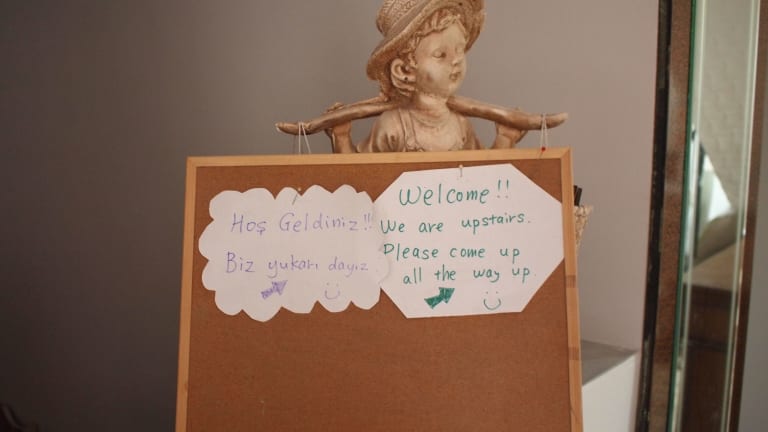 Hoş Geldiniz!!
Biz yukarı dayız
Welcome!!
We are upstairs.
Please come up
all the way up.